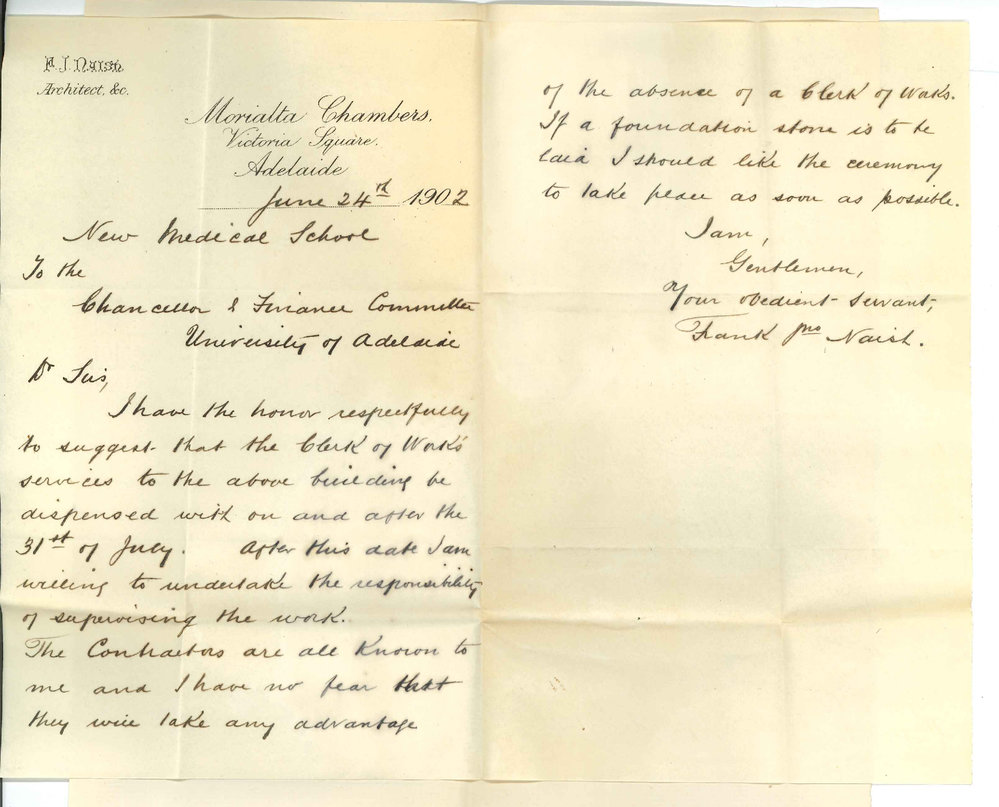 F. J. Naish
Architect, &c.
Morialta Chambers,
Victoria Square,
Adelaide
June 24th 1902
New Medical School
To the
Chancellor & Finance Committee
University of Adelaide
Dr Sirs,
I have the honor respectfully
to suggest that the Clerk of Work's
services to the above building be
dispensed with on and after the
31st of July. After this date I am
willing to undertake the responsibility
of supervising the work.
The Contractors are all known to
me and I have no fear that
they will take any advantage
of the absence of a Clerk of Works.
If a foundation stone is to be
laid I should like the ceremony
to take place as soon as possible.
I am,
Gentlemen,
Your obedient servant,
Frank Naish.